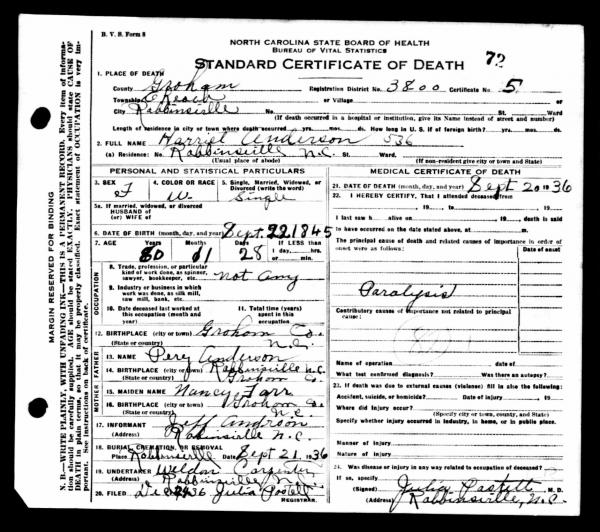 B. V. S. Form 8
NORTH CAROLINA STATE BOARD OF HEALTH
BUREAU OF VITAL STATISTICS
STANDARD CERTIFICATE OF DEATH 72
1. PLACE OF DEATH
County Groham Registration District No. 3800 Certificate No. 5
Township or Village
City Robbinsville No. St. Ward
(If death occurred in a hospital or institution, give its Name instead of street and number)
Length of residence in city or town where death occurred yrs. mos. ds. How long in U. S. if of foreign birth? yrs. mos. ds.
2. FULL NAME Harriet Anderson 536
(a) Residence: No. Robbinsville N.C. St. Ward.
(Usual place of abode) (If non-resident give city or town and State)
PERSONAL AND STATISTICAL PARTICULARS
3. SEX F 4. COLOR OR RACE W. 5. Single, Married, Widowed, or Divorced (write the word) Single
5a. If married, widowed, or divorced
HUSBAND of
(or) WIFE of
6. DATE OF BIRTH (month, day, and year) Sept. 22 1845
7. AGE Years Months Days If LESS than
80 11 28 1 day, hrs.
or min.
OCCUPATION
8. Trade, profession, or particular kind of work done, as spinner, sawyer, bookkeeper, etc. not any
9. Industry or business in which work was done, as silk mill, saw mill, bank, etc.
10. Date deceased last worked at this occupation (month and year)
11. Total time (years) spent in this occupation
12. BIRTHPLACE (city or town) Groham Co.
(State or country) N.C.
FATHER
13. NAME Pery Anderson
14. BIRTHPLACE (city or town) Robbinsville N.C.
(State or country) Groham Co.
MOTHER
15. MAIDEN NAME Nancy Farr
16. BIRTHPLACE (city or town) Groham Co
(State or country) N.C.
17. INFORMANT Jeff Andrson
(Address) Robinsville N.C.
18. BURIAL, CREMATION, OR REMOVAL
Place Robbinsville Date Sept 21, 1936
19. UNDERTAKER Weldon Carpenter
(Address) Robbinsville N.C.
20. FILED 1936 Julia Postell
REGISTRAR.
MEDICAL CERTIFICATE OF DEATH
21. DATE OF DEATH (month, day, and year) Sept 20 1936
22. I HEREBY CERTIFY, That I attended deceased from
, 19 , to , 19
I last saw h alive on , 19 , death is said
to have occurred on the date stated above, at m.
The principal cause of death and related causes of importance in order of onset were as follows: Date of onset
Paralysis
Contributory causes of importance not related to principal cause:
Name of operation Date of
What test confirmed diagnosis? Was there an autopsy?
23. If death was due to external causes (violence) fill in also the following:
Accident, suicide, or homicide? Date of injury 19
Where did injury occur?
(Specify city or town, county, and State)
Specify whether injury occurred in industry, in home, or in public place.
Manner of injury
Nature of injury
24. Was disease or injury in any way related to occupation of deceased?
If so, specify
(Signed) Julia Postell, M. D.
(Address) Robbinsville, N.C.
MARGIN RESERVED FOR BINDING
N. B.—WRITE PLAINLY, WITH UNFADING INK—THIS IS A PERMANENT RECORD. Every item of information should be carefully supplied. AGE should be stated EXACTLY. PHYSICIANS should state CAUSE OF DEATH in plain terms, so that it may be properly classified. Exact statement of OCCUPATION is very important. See instructions on back of certificate.